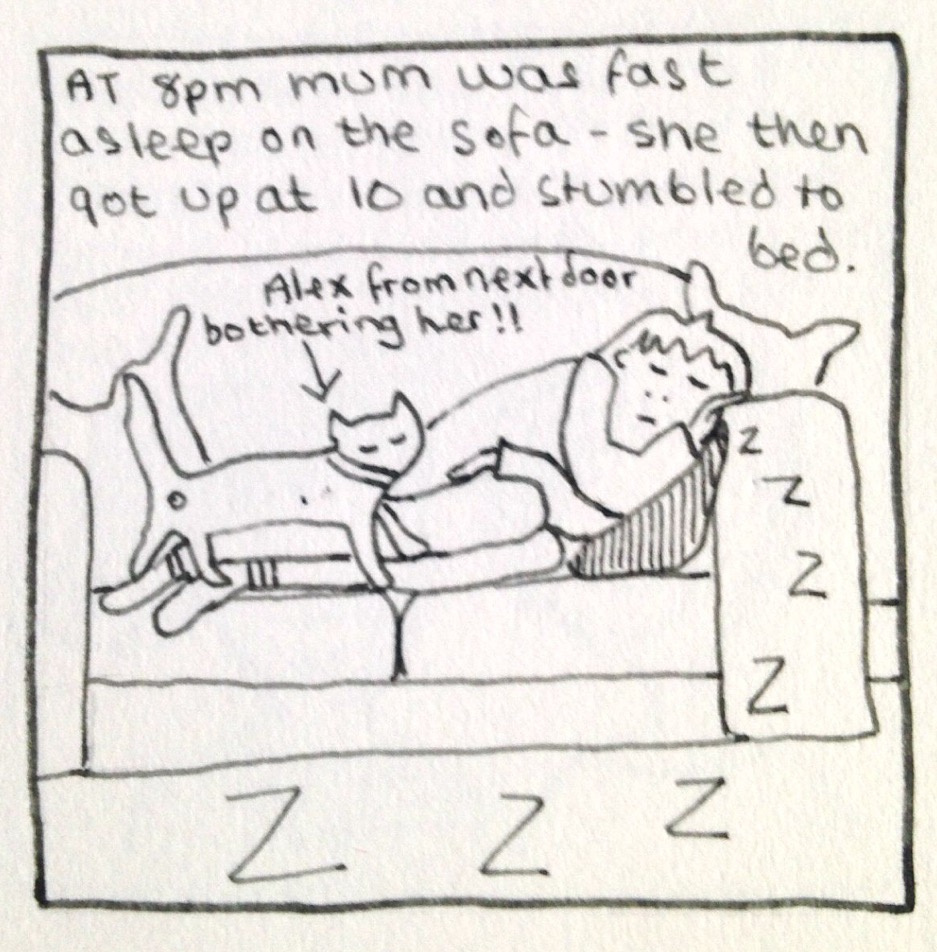 AT 8pm mum was fast
asleep on the sofa - she then
got up at 10 and stumbled to
bed.
Alex from next door
bothering her!!
z
z
z
z
z
z
z